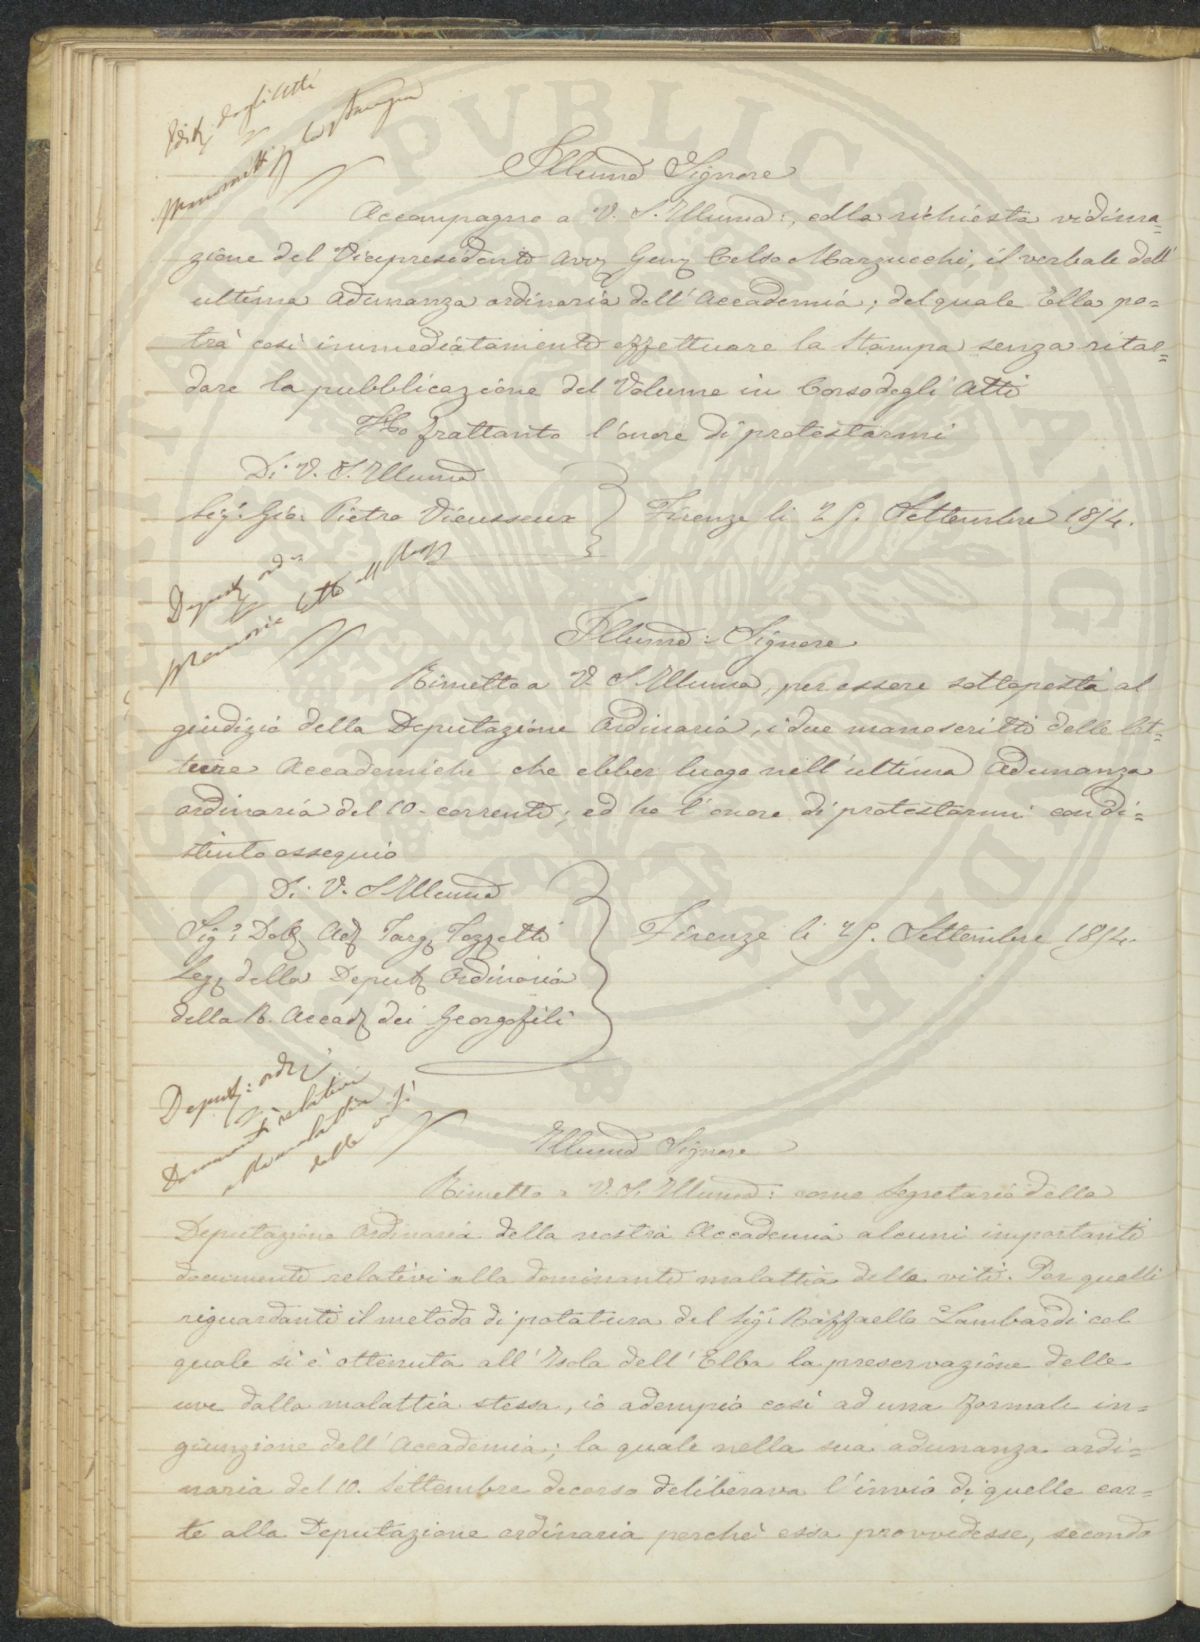 Edit. degli Atti
Manoscritti per la Stampa
Illumo Signore
Accompagno a V. S. Illuma:, colla richiesta vidima=
zione del Vicepresidente Avv. Gen. Celso Marzucchi, il verbale dell'
ultima adunanza ordinaria dell'Accademia; del quale Ella po=
trà così immediatamente effettuare la Stampa senza ritar=
dare la pubblicazione del Volume in Corso degli Atti
Ho frattanto l'onore di protestarmi
Di V. S. Illuma
Sigr. Gio: Pietro Vieusseux
Firenze li 25. Settembre 1854.
Deput. ord.
Memorie lette
Illumo: Signore
Rimetto a V. S. Illuma, per essere sottoposta al
giudizio della Deputazione Ordinaria, i due manoscritti delle let=
ture Accademiche che ebber luogo nell'ultima Adunanza
ordinaria del 10. corrente; ed ho l'onore di protestarmi con di=
stinto ossequio
Di V. S. Illuma
Sigr. Dott. Ad. Targ. Tozzetti
Seg. della Deput. Ordinaria
della R. Accad. dei Georgofili
Firenze li 25. Settembre 1854.
Deput: ord.
Documenti relativi
alla malattia
delle viti
Illumo Signore
Rimetto a V. S. Illuma: come Segretario della
Deputazione Ordinaria della nostra Accademia alcuni importanti
documenti relativi alla dominante malattia delle viti. Per quelli
riguardanti il metodo di potatura del Sigr. Raffaello Lambardi col
quale si è ottenuta all'Isola dell'Elba la preservazione delle
uve dalla malattia stessa, io adempio così ad una formale in=
giunzione dell'Accademia; la quale nella sua adunanza ordi=
naria del 10. Settembre decorso deliberava l'invio di quelle car=
te alla Deputazione ordinaria perchè essa provvedesse, secondo